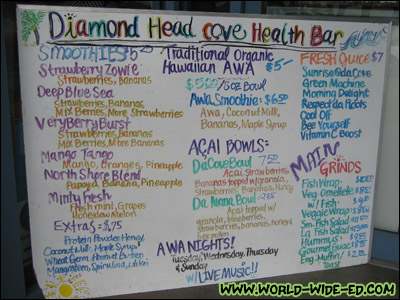 Diamond Head Cove Health Bar
SMOOTHIES $5.25
Strawberry Zowie
Strawberries, Bananas
Deep Blue Sea
Strawberries, Bananas,
Mix Berries, More Strawberries
Very Berry Burst
Strawberries, Bananas
Mix Berries, More Strawberries
Mango Tango
Mango, Oranges, Pineapple
North Shore Blend
Papaya, Banana, Pineapple
Minty fresh
Fresh mint, Grapes
Honeydew Melon
Extras - $.75
Protein Powder, Honey,
Coconut Milk, Maple Syrup
Wheat Germ, Peanut Butter
Mangosteen, Spirulina,
Traditional Organic
Hawaiian AWA $5-
75oz Bowl
Awa Smoothie: $6.50
Awa, Coconut Milk,
Bananas, Maple Syrup
AÇAI BOWLS:
Da Cove Bowl 7.50
Acai, Strawberries,
Bananas topped w/ granola,
Strawberries, Bananas, Honey
Da Nana Bowl 7.95
Acai topped w/
granola, blueberries,
strawberries, bananas, honey
bee pollen
AWA NIGHTS!
Tuesday, Wednesday, Thursday
& Sunday
w/ LIVE MUSIC!!
FRESH JUICE $7
Sunrise @ da Cove
Green Machine
Morning Delight
Respect da Roots
Cool Off
Bee Yourself
Vitamin C Boost
MAIN
GRINDS
Fish Wrap
Veg. Omelette
w/ Fish
Veggie Wrap
Sm. Fish Salad
Lg. Fish Salad
Hummus
Gourmet Quiche
Eng. Muffin
WWW.WORLD-WIDE-ED.COM